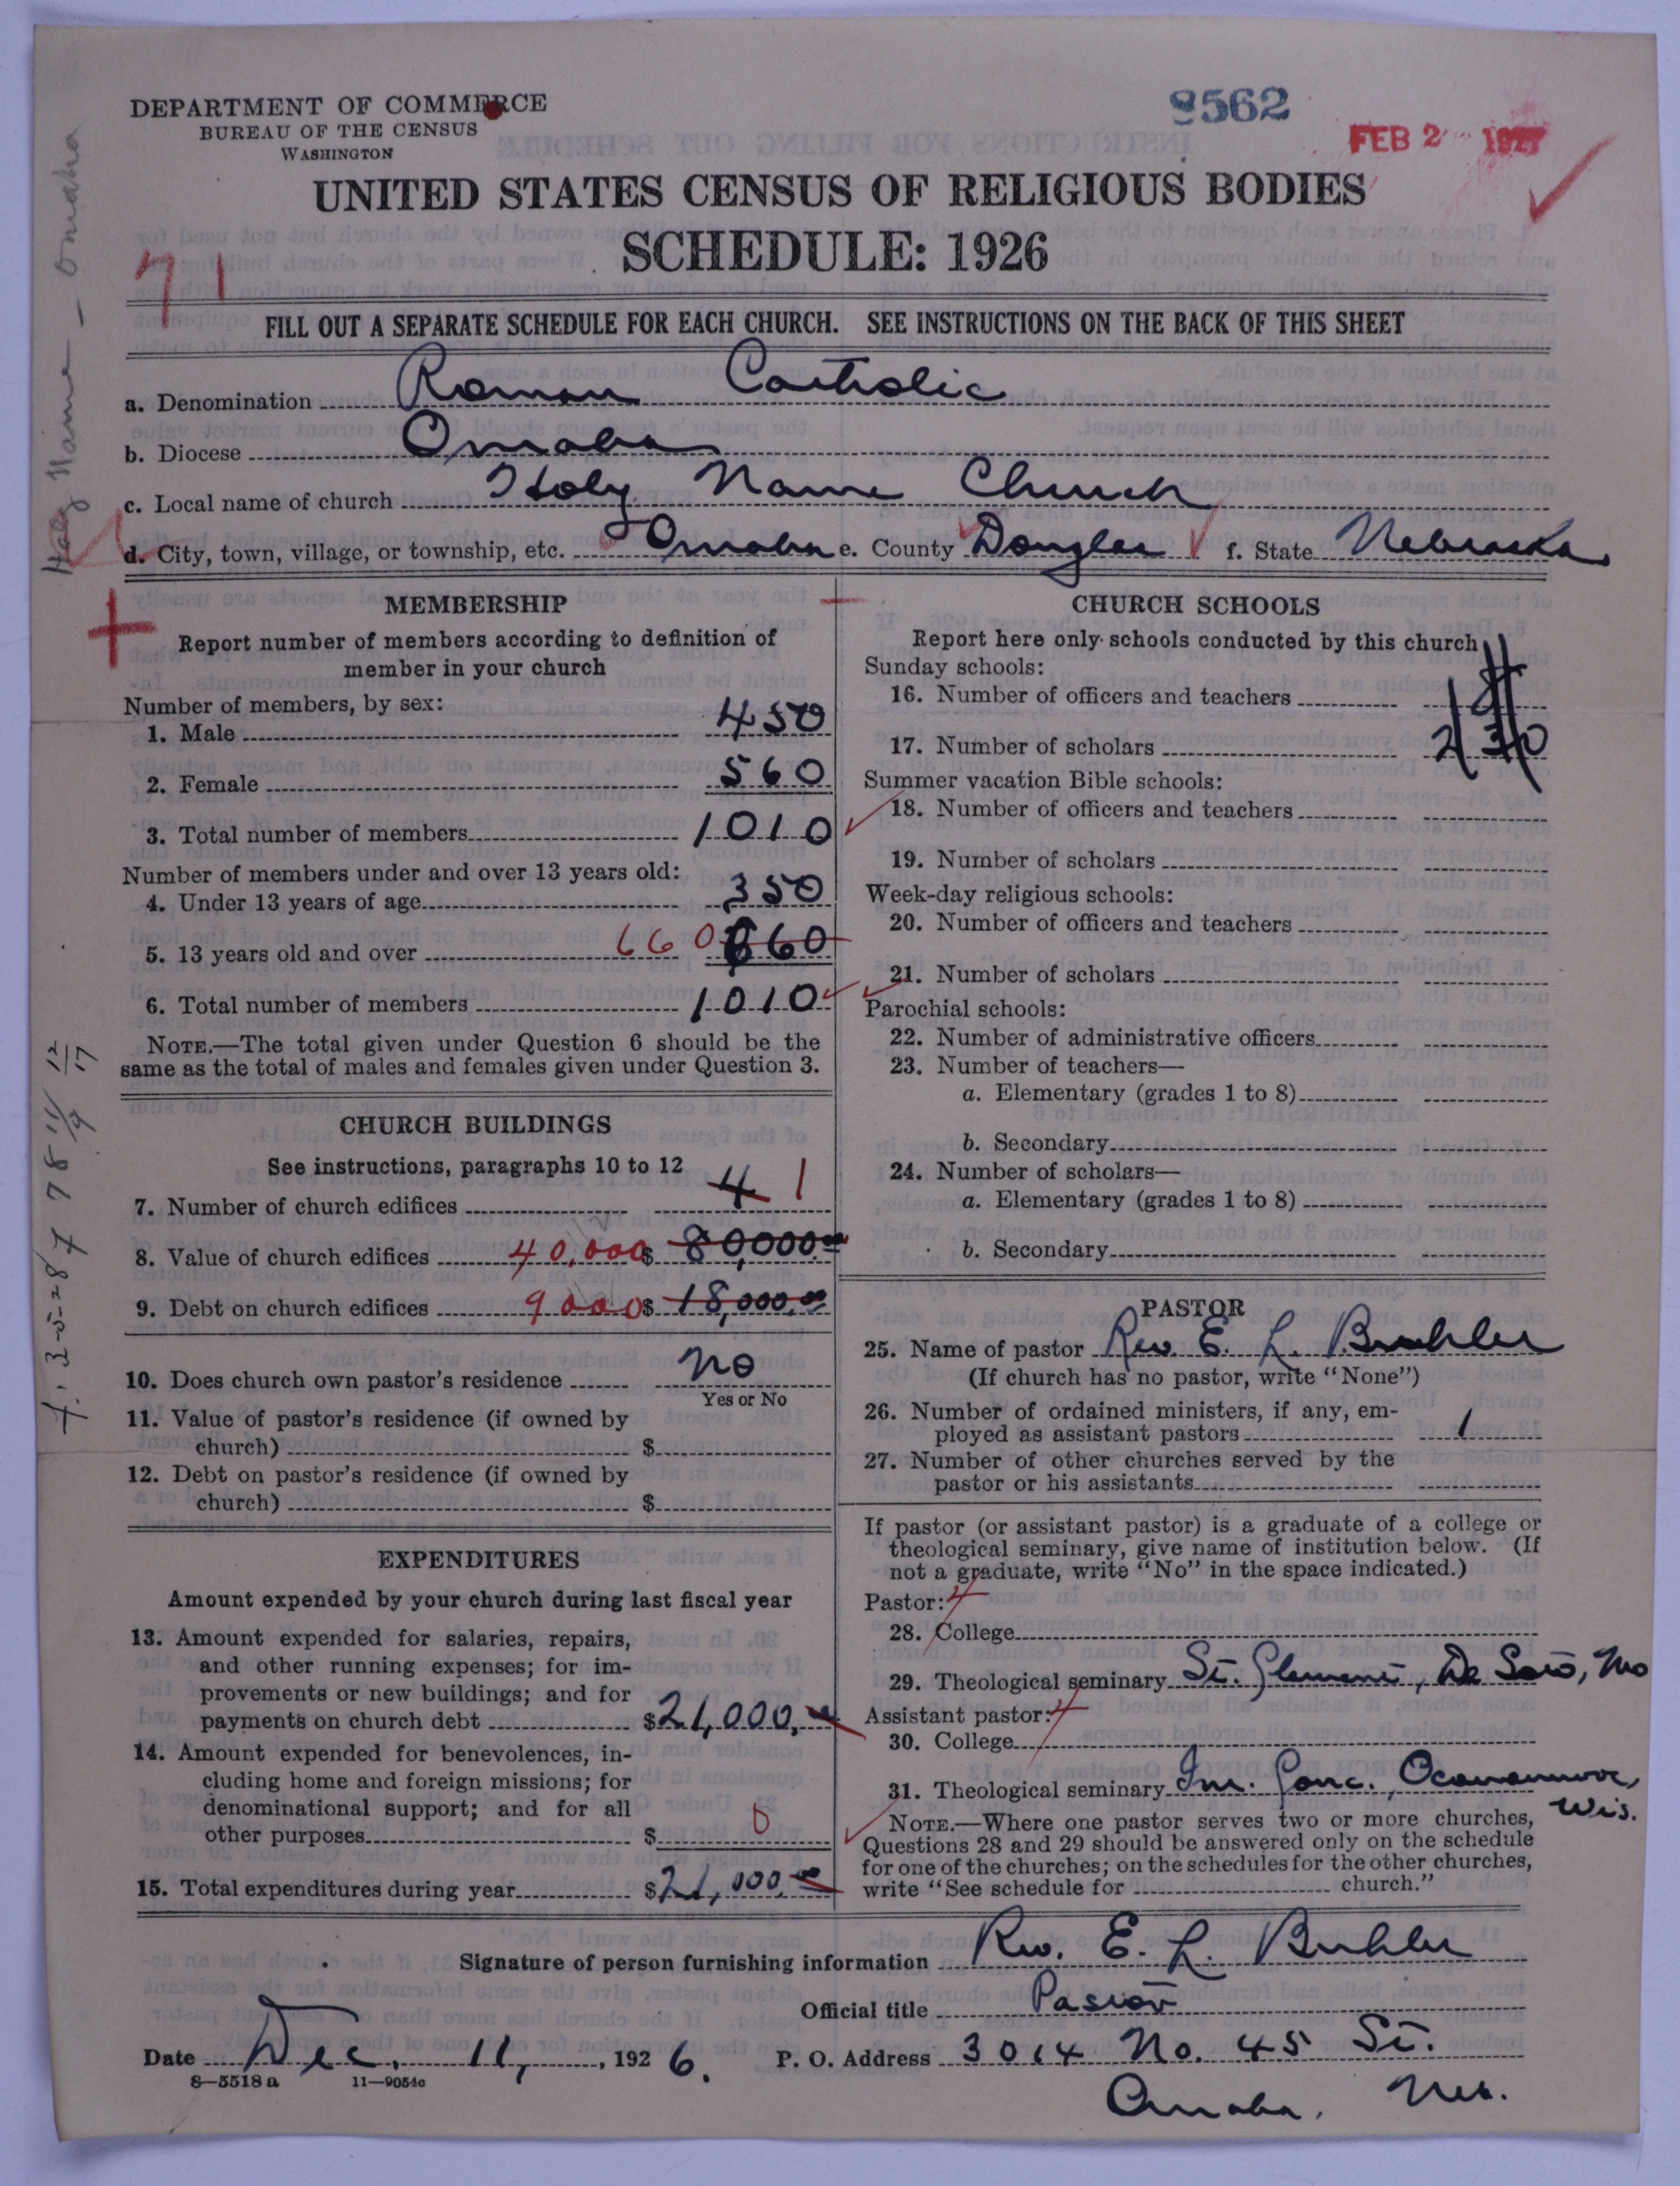 DEPARTMENT OF COMMERCE
BUREAU OF THE CENSUS
WASHINGTON
8562
FEB 2 1927
UNITED STATES CENSUS OF RELIGIOUS BODIES
SCHEDULE: 1926
71
FILL OUT A SEPARATE SCHEDULE FOR EACH CHURCH. SEE INSTRUCTIONS ON THE BACK OF THIS SHEET
a. Denomination Roman Catholic
b. Diocese Omaha
c. Local name of church Holy Name Church
d. City, town, village, or township, etc. Omaha e. County Douglas f. State Nebraska
Holy Name - Omaha
MEMBERSHIP
Report number of members according to definition of
member in your church
Number of members, by sex:
1. Male 450
2. Female 560
3. Total number of members 1010
Number of members under and over 13 years old:
4. Under 13 years of age 350
5. 13 years old and over 660 660
6. Total number of members 1010
NOTE.—The total given under Question 6 should be the
same as the total of males and females given under Question 3.
CHURCH BUILDINGS
See instructions, paragraphs 10 to 12
7. Number of church edifices 4 1
8. Value of church edifices 40,000 $ 80,000.00
9. Debt on church edifices 9000 $ 18,000.00
10. Does church own pastor's residence No
Yes or No
11. Value of pastor's residence (if owned by
church) $
12. Debt on pastor's residence (if owned by
church) $
EXPENDITURES
Amount expended by your church during last fiscal year
13. Amount expended for salaries, repairs,
and other running expenses; for im-
provements or new buildings; and for
payments on church debt $21,000.00
14. Amount expended for benevolences, in-
cluding home and foreign missions; for
denominational support; and for all
other purposes $ 0
15. Total expenditures during year $21,000.00
CHURCH SCHOOLS
Report here only schools conducted by this church
Sunday schools:
16. Number of officers and teachers 8
17. Number of scholars 230
Summer vacation Bible schools:
18. Number of officers and teachers
19. Number of scholars
Week-day religious schools:
20. Number of officers and teachers
21. Number of scholars
Parochial schools:
22. Number of administrative officers
23. Number of teachers—
a. Elementary (grades 1 to 8)
b. Secondary
24. Number of scholars—
a. Elementary (grades 1 to 8)
b. Secondary
PASTOR
25. Name of pastor Rev. E. L. Buhler
(If church has no pastor, write "None")
26. Number of ordained ministers, if any, em-
ployed as assistant pastors 1
27. Number of other churches served by the
pastor or his assistants
If pastor (or assistant pastor) is a graduate of a college or
theological seminary, give name of institution below. (If
not a graduate, write "No" in the space indicated.)
Pastor: 4
28. College
29. Theological seminary St. Clement, De Soto, Mo
Assistant pastor: 4
30. College
31. Theological seminary Im. Conc. Oconomowoc,
Wis.
NOTE.—Where one pastor serves two or more churches,
Questions 28 and 29 should be answered only on the schedule
for one of the churches; on the schedules for the other churches,
write "See schedule for church."
Signature of person furnishing information Rev. E. L. Buhler
Official title Pastor
Date Dec. 11, 1926. P. O. Address 3014 No. 45 St.
8—5518a 11—9054c
Omaha, Neb.